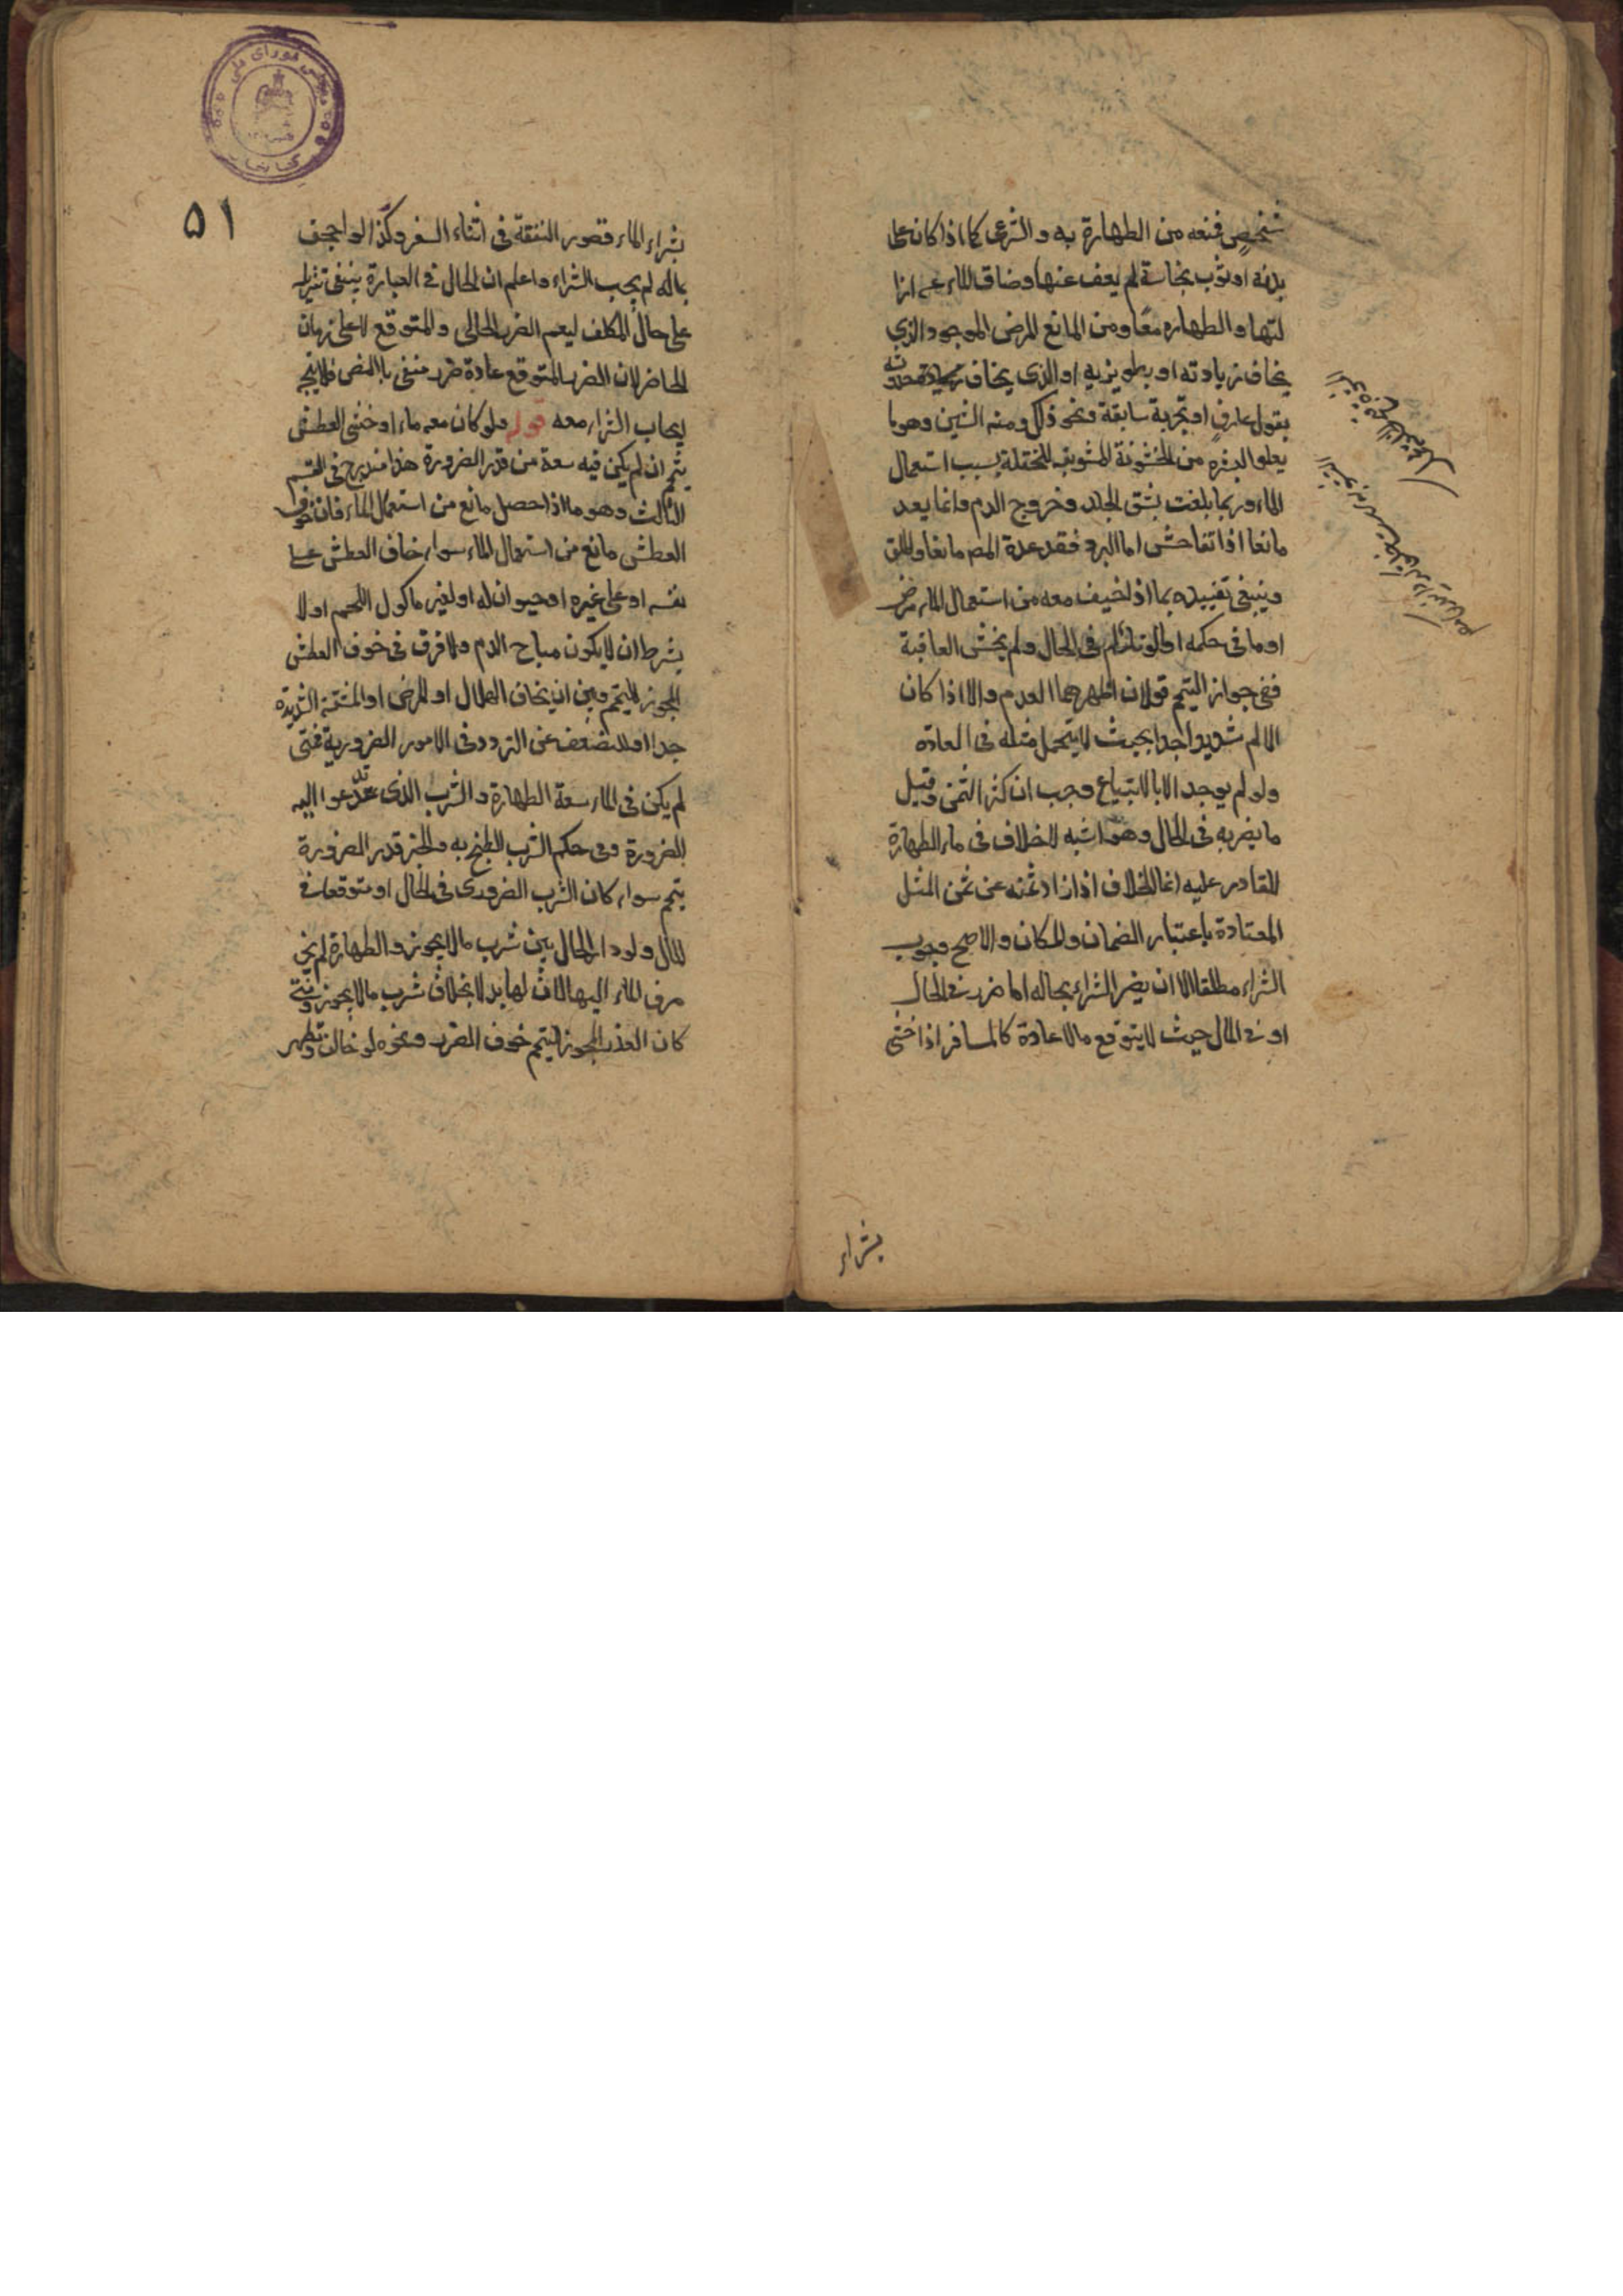 شخص فمنعه من الطهارة به والشرعى كما اذا كان على
بدنه او ثوب نجاسة لم يعف عنها وضاق الماء عن ازا
لتها والطهاره معًا ومن المانع المرض الموجود الذي
يخاف زيادته او بطو برئه او الذى يخاف حدوثه
بقول عارف او تجربة سابقة ونحو ذلك ومنه الشين وهو ما
يعلو البشره من الخشونة المشوهة للخلقة بسبب استعمال
الماء وربما بلغت تشقق الجلد وخروج الدم وانما يعد
مانعا اذا تفاحش اما البرد فقد عده المص مانعا
وينبغى تقييده بما اذا خيف معه من استعمال الماء مرض
او ما فى حكمه اما لو تألم فى الحال ولم يخش العاقبة
ففى جواز التيمم قولان اظهرهما العدم والا اذا كان
الالم شديدا جدا بحيث لا يتحمل مثله فى العاده
ولو لم يوجد الا بالابتياع وجب ان كثر الثمن وقيل
ما يضر به فى الحال وهو اشبه لا خلاف فى ماء الطهارة
للقادر عليه انما الخلاف اذا زاد ثمنه عن ثمن المثل
المعتادة باعتبار الضمان والمكان والاصح وجوب
الشراء مطلقا الا ان يضر الشراء بحاله اما ضرر فى الحال
او فى المال حيث لا يتوقع مالا عادة كالمسافر اذا خشى
بشراء
۵۱
بشراء الماء قصور النفقة فى اثناء السفر وكذا لو اجحف
بماله لم يجب الشراء واعلم ان الحال فى العبارة ينبغى تنزيله
على حال المكلف ليعم الضرر الحالى والمتوقع لا على زمان
الحاضر لان الضرر المتوقع عادة ضرر منفى بالنص فلا يتجه
ايجاب الشراء معه قوله ولو كان معه ماء وخشى العطش
يتيمم ان لم يكن فيه سعة من قدر الضرورة هذا مندرج فى القسم
الثالث وهو ما اذا حصل مانع من استعمال الماء فان خوف
العطش مانع من استعمال الماء سواء خاف العطش على
نفسه او على غيره او حيوان له او لغيره ماكول اللحم او لا
بشرط ان لا يكون مباح الدم ولا فرق فى خوف العطش
المجوز للتيمم وبين ان يخاف الهلاك او المرض او المشقة الشديدة
جدا او الضعف عن التردد فى الامور الضرورية فمتى
لم يكن فى الماء سعة الطهارة والشرب الذى تدعوا اليه
الضرورة وفى حكم الشرب الطبخ به والخبز قدر الضرورة
يتيمم سواء كان الشرب الضرورى فى الحال او متوقعا فى
المال ولو دار الحال بين شرب ما لا يجوز والطهارة لم يجز
صرف الماء اليها لان لها بدلا بخلاف شرب ما لا يجوز ومتى
كان العذر المجوز للتيمم خوف الضرر ونحوه لو خالف وتطهر